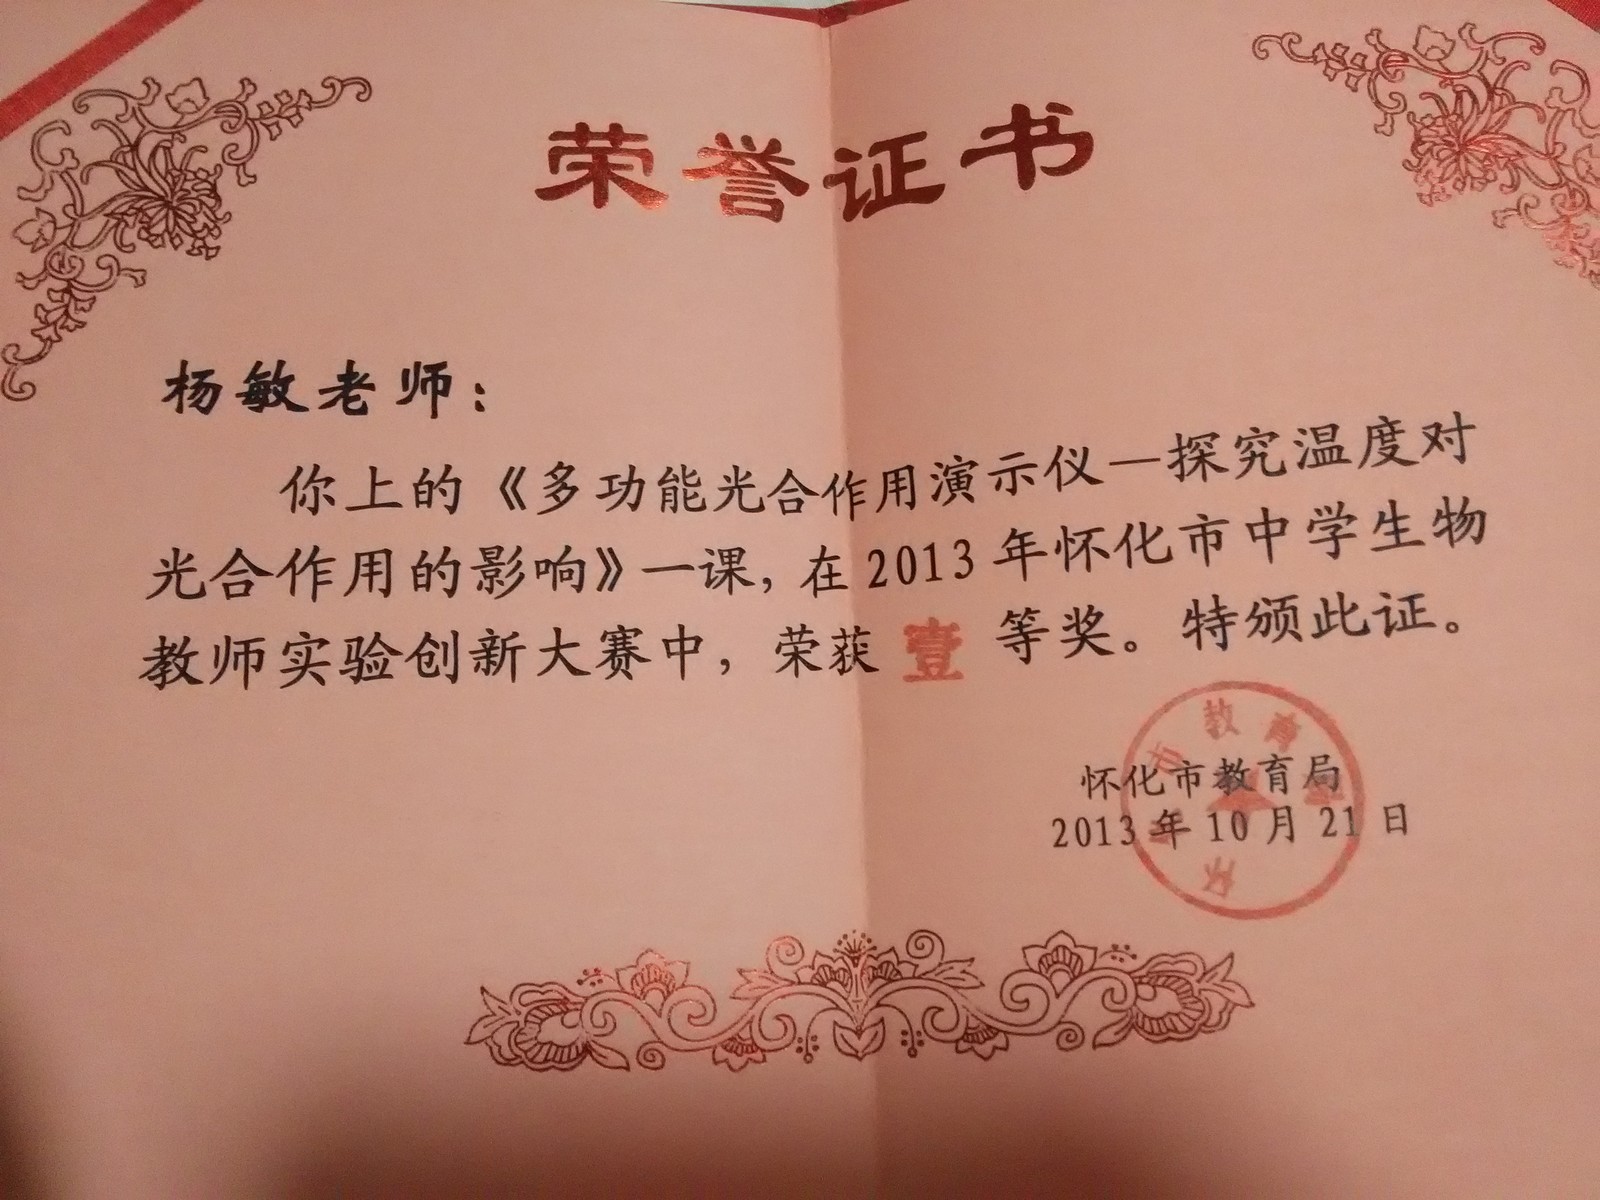 荣誉证书
杨敏老师：
你上的《多功能光合作用演示仪—探究温度对
光合作用的影响》一课，在2013年怀化市中学生物
教师实验创新大赛中，荣获 壹 等奖。特颁此证。
怀化市教育局
2013年10月21日
怀 市教育